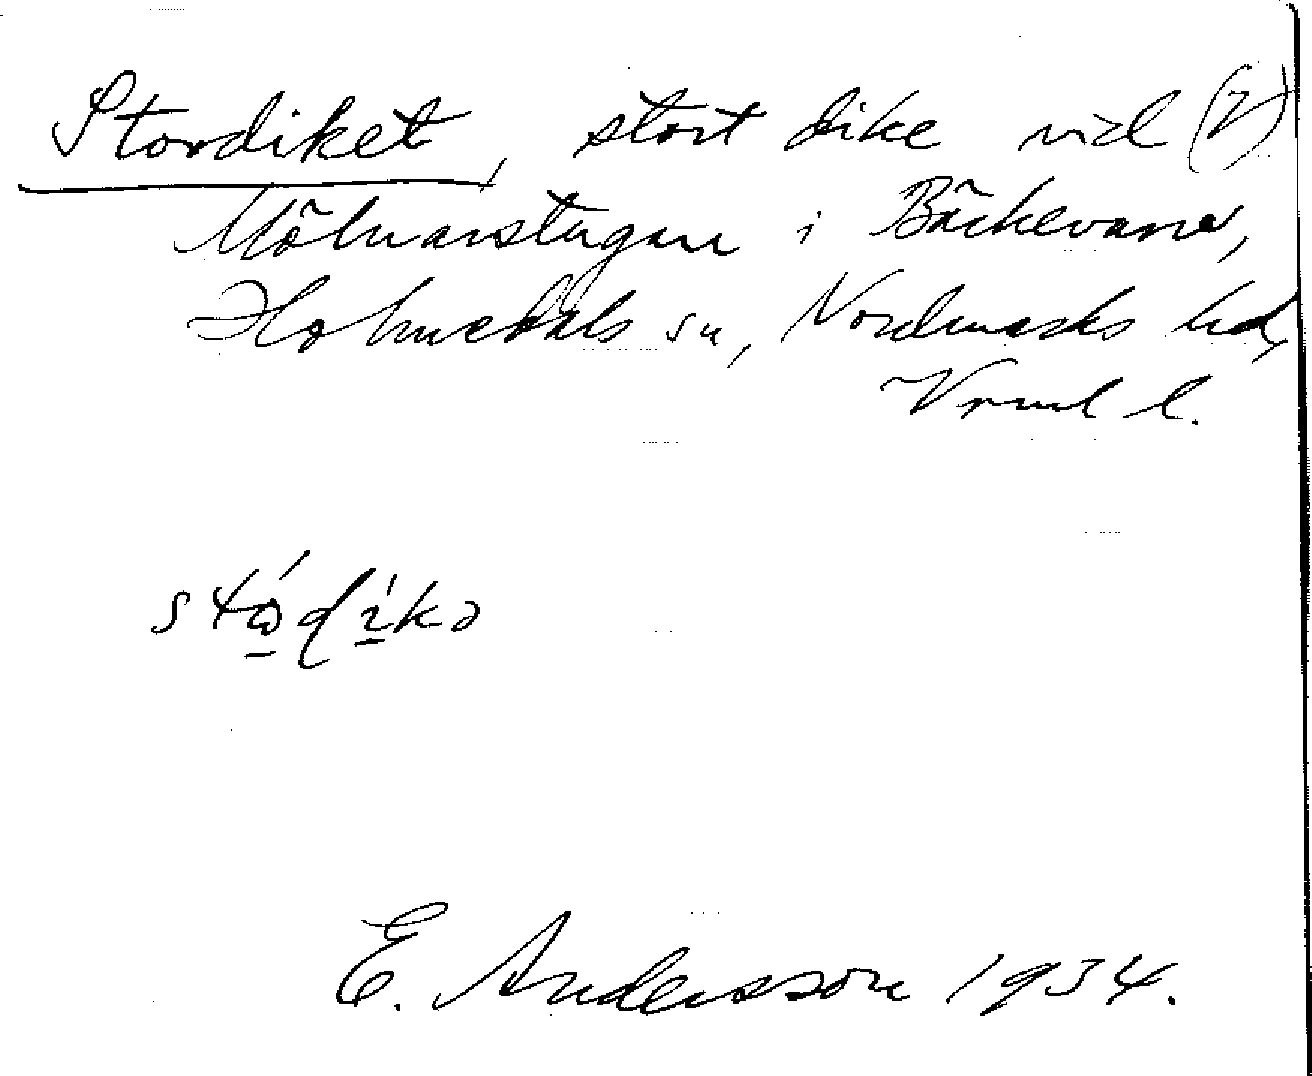 Stordiket, stort dike vid (?)
Mölnarstugan i Bäckevarv,
Holmedals sn, Nordmarks hd,
Vrml l.
E. Andersson 1934.